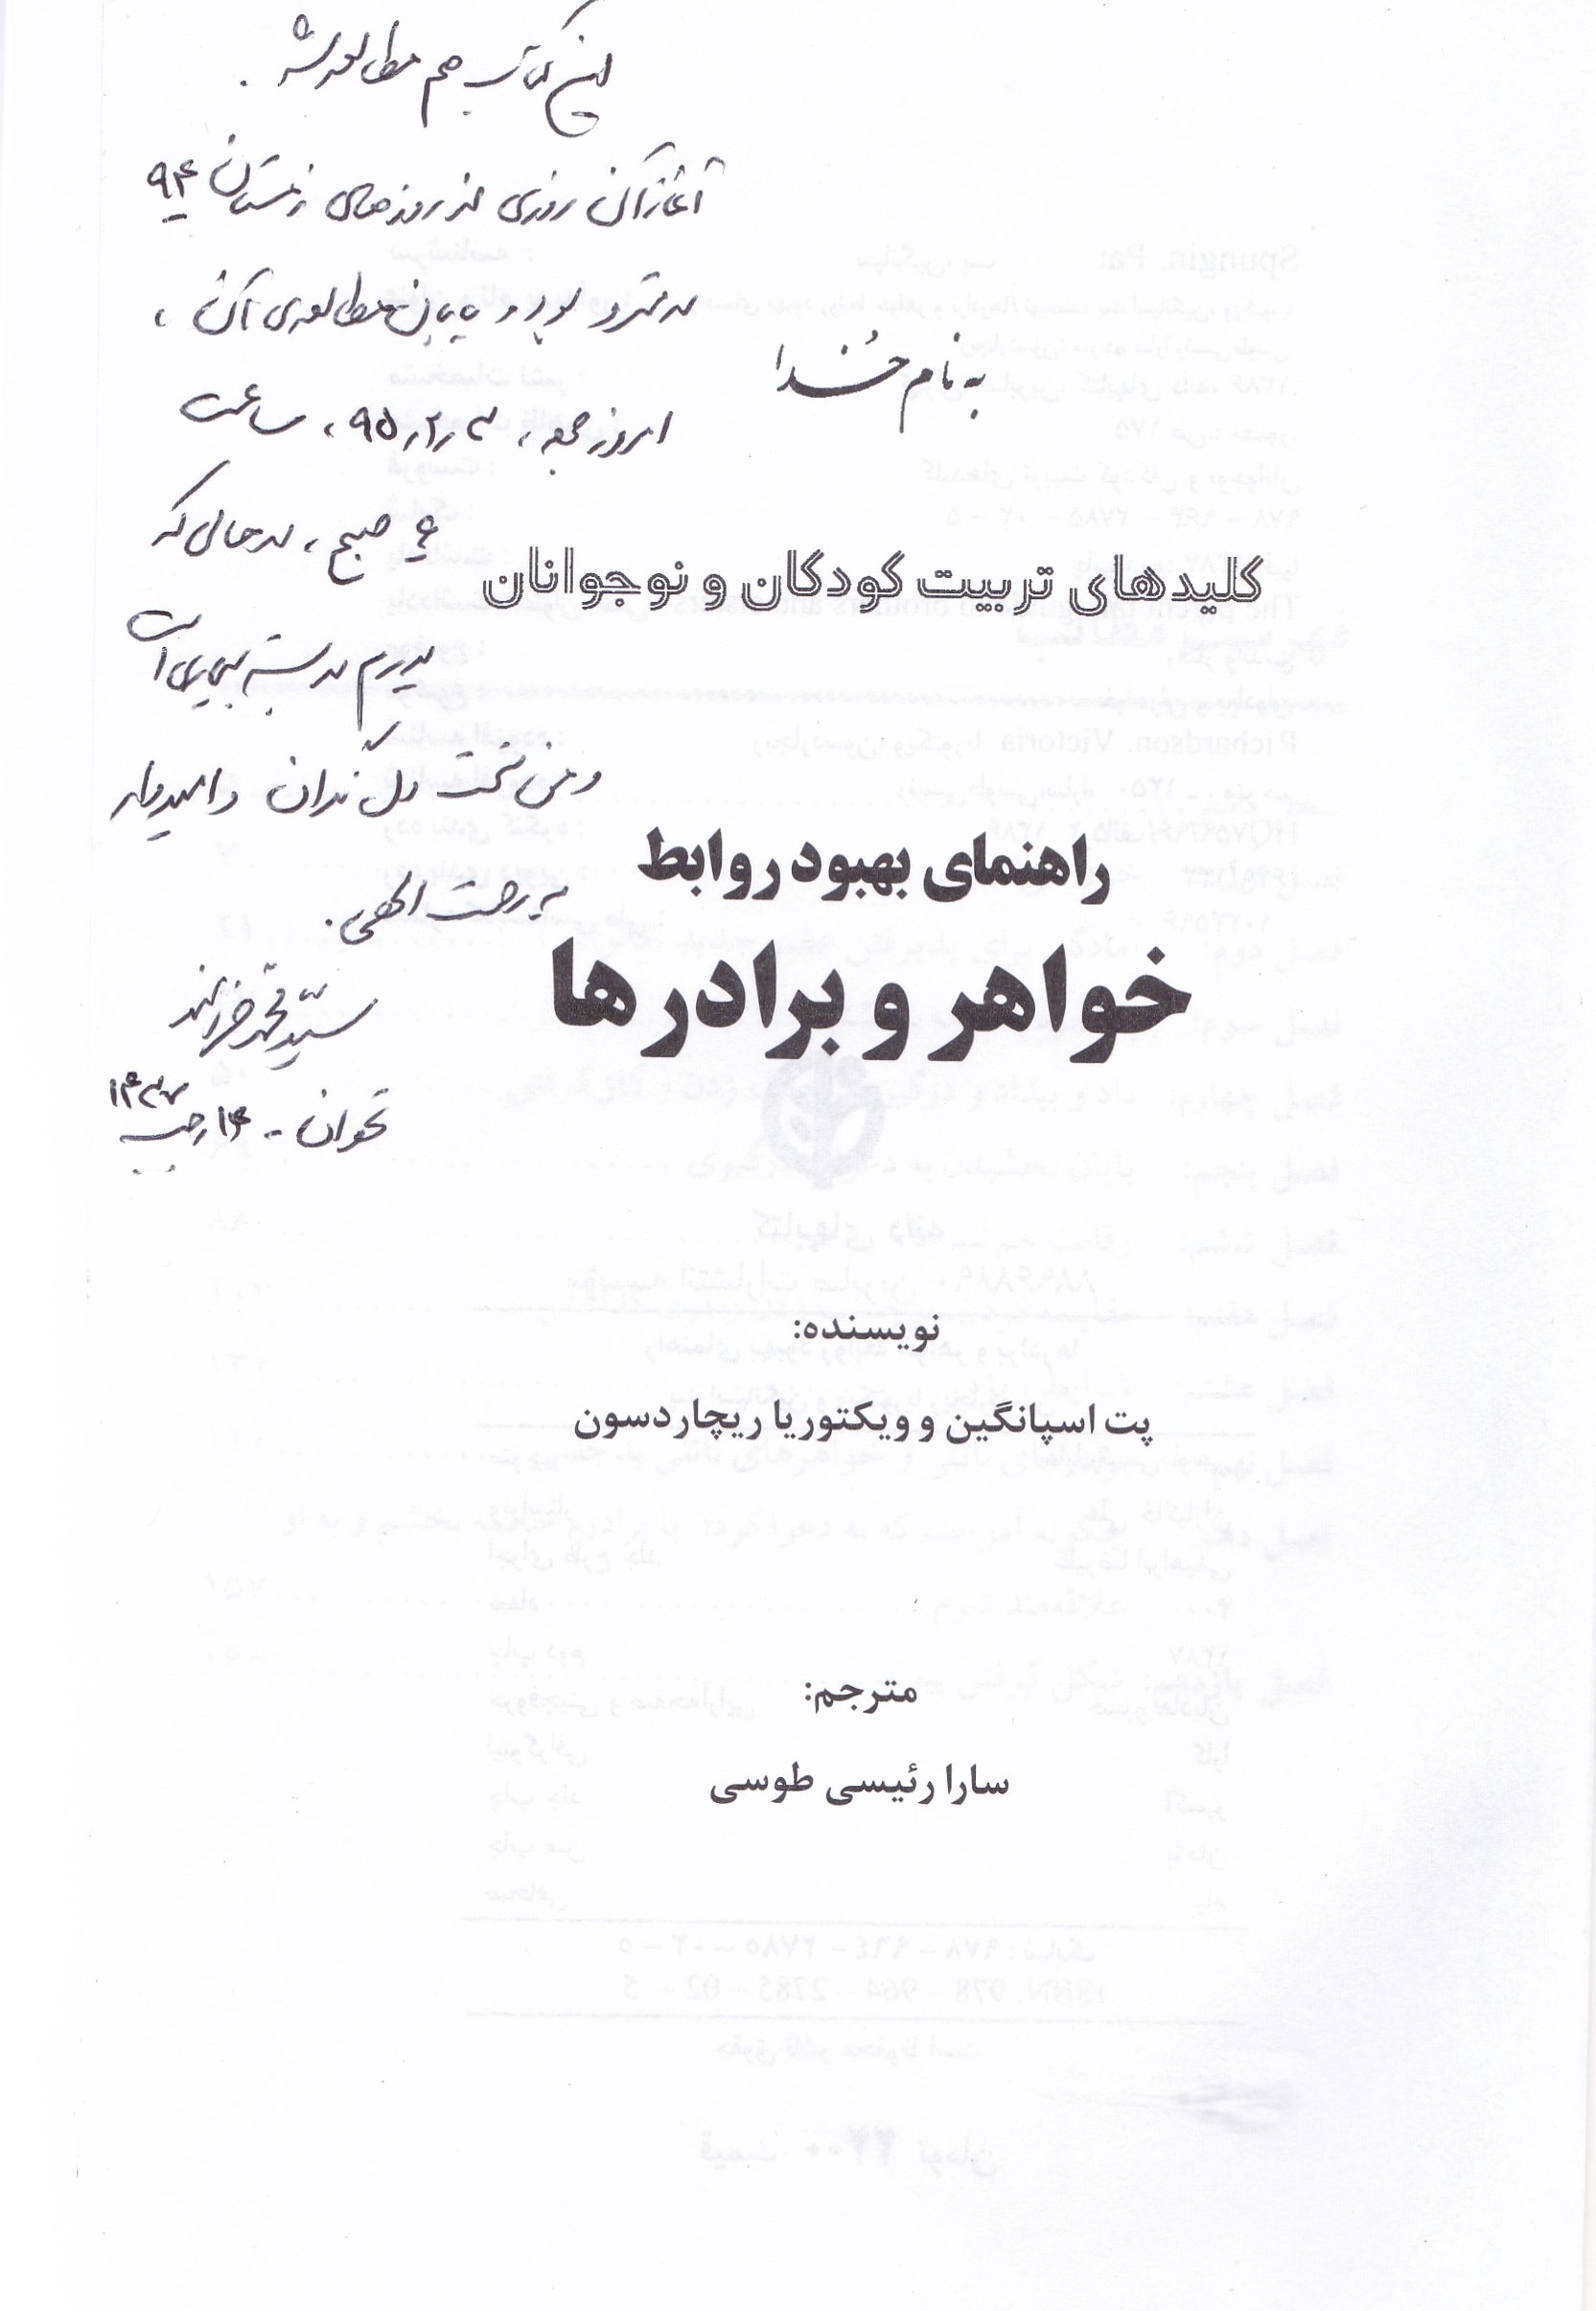 این کتاب هم مطالعه شد.
آغاز آن روزی از روزهای زمستان ۹۴
در مترو بود و پایان مطالعه‌ی آن،
به نام خُدا
امروز جمعه، ۹۵٫۲٫۳، ساعت
۶ صبح، در حالی که
پدرم در بستر بیماری است
و من سخت دل نگران و امیدوار
به رحمت الهی.
سیّد محمّد
تهران - ۱۴ رجب ۱۴۳۷
کلیدهای تربیت کودکان و نوجوانان
راهنمای بهبود روابط
خواهر و برادرها
نویسنده:
پت اسپانگین و ویکتوریا ریچاردسون
مترجم:
سارا رئیسی طوسی